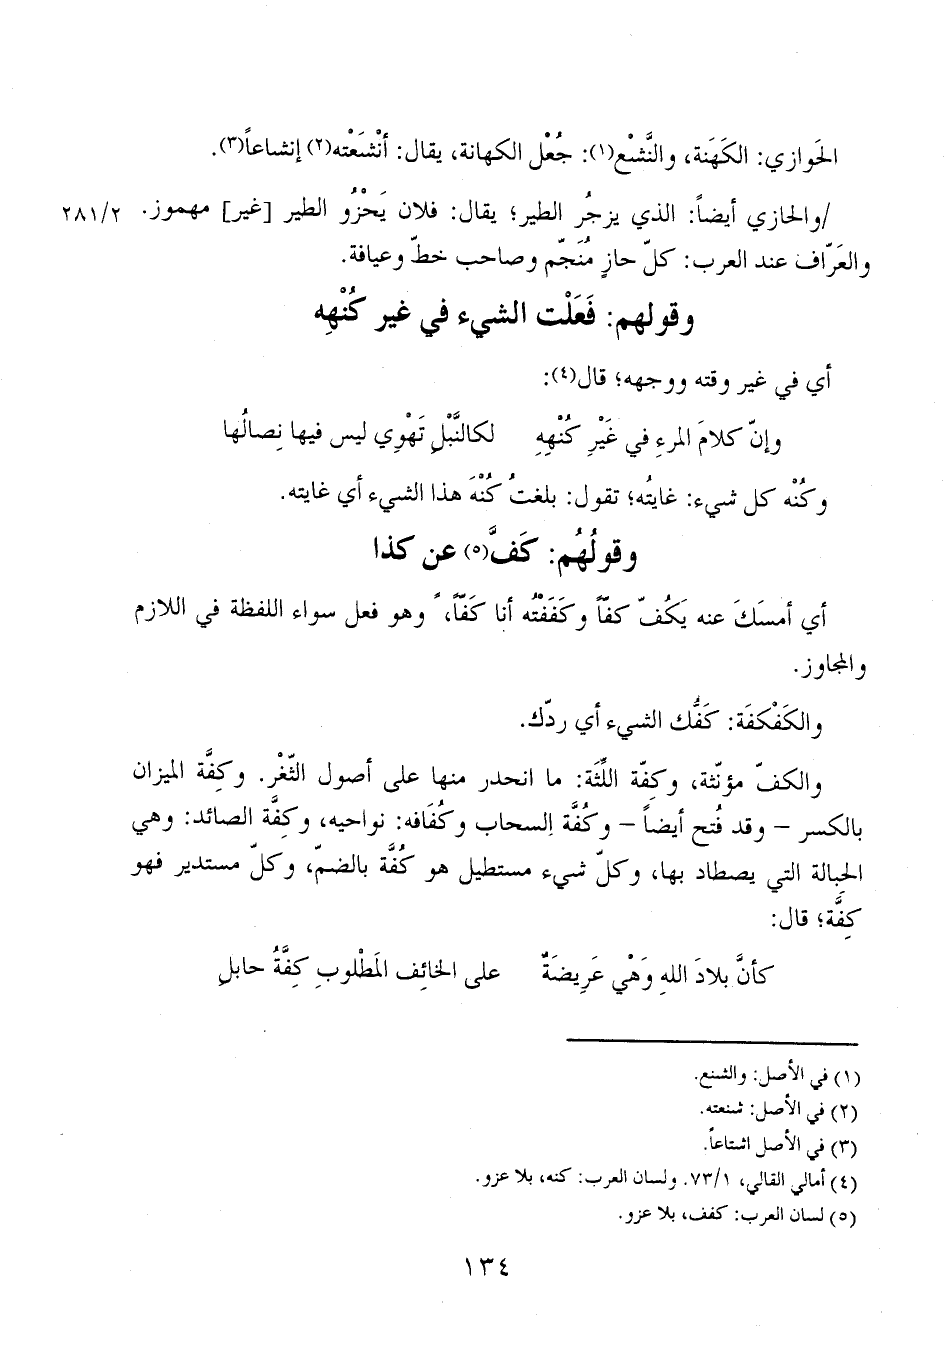 الحَوازي: الكَهَنة، والنَّشْع(١): جُعْل الكهانة، يقال: أنْشَعْته(٢) إنشاعاً(٣).
/والحازي أيضاً: الذي يزجرُ الطير؛ يقال: فلان يَحْزُو الطير [غير] مهموز. ٢٨١/٢
والعَرّاف عند العرب: كلّ حازٍ مُنَجّم وصاحب خطّ وعيافة.
وقولهم: فَعَلْت الشيء في غير كُنْهِه
أي في غير وقته ووجهه؛ قال(٤):
وإنّ كلامَ المرءِ في غَيْرِ كُنْهِهِ لكالنَّبْلِ تَهْوِي ليس فيها نِصالُها
وكُنْه كل شيء: غايتُه؛ تقول: بلغتُ كُنْهَ هذا الشيء أي غايته.
وقولُهُم: كَفَّ(٥) عن كذا
أي أمسَكَ عنه يَكُفّ كفّاً وكَفَفْتُه أنا كَفّاً، وهو فعل سواء اللفظة في اللازم
والمجاوز.
والكَفْكفَة: كَفُّك الشيء أي ردّك.
والكفّ مؤنّثة، وكِفّة اللِّثَة: ما انحدر منها على أصول الثّغْر. وكِفَّة الميزان
بالكسر - وقد فُتح أيضاً - وكُفَّة السحاب وكُفَافه: نواحيه، وكِفَّة الصائد: وهي
الحبالة التي يصطاد بها، وكلّ شيء مستطيل هو كُفَّة بالضمّ، وكلّ مستدير فهو
كِفَّة؛ قال:
كأنَّ بلادَ اللهِ وَهْي عَرِيضَةٌ على الخائِف المَطْلوبِ كِفَّةُ حابلِ
(١) في الأصل: والشنع.
(٢) في الأصل: شنعته.
(٣) في الأصل اشتاعاً.
(٤) أمالي القالي، ٧٣/١. ولسان العرب: كنه، بلا عزو.
(٥) لسان العرب: كفف، بلا عزو.
١٣٤